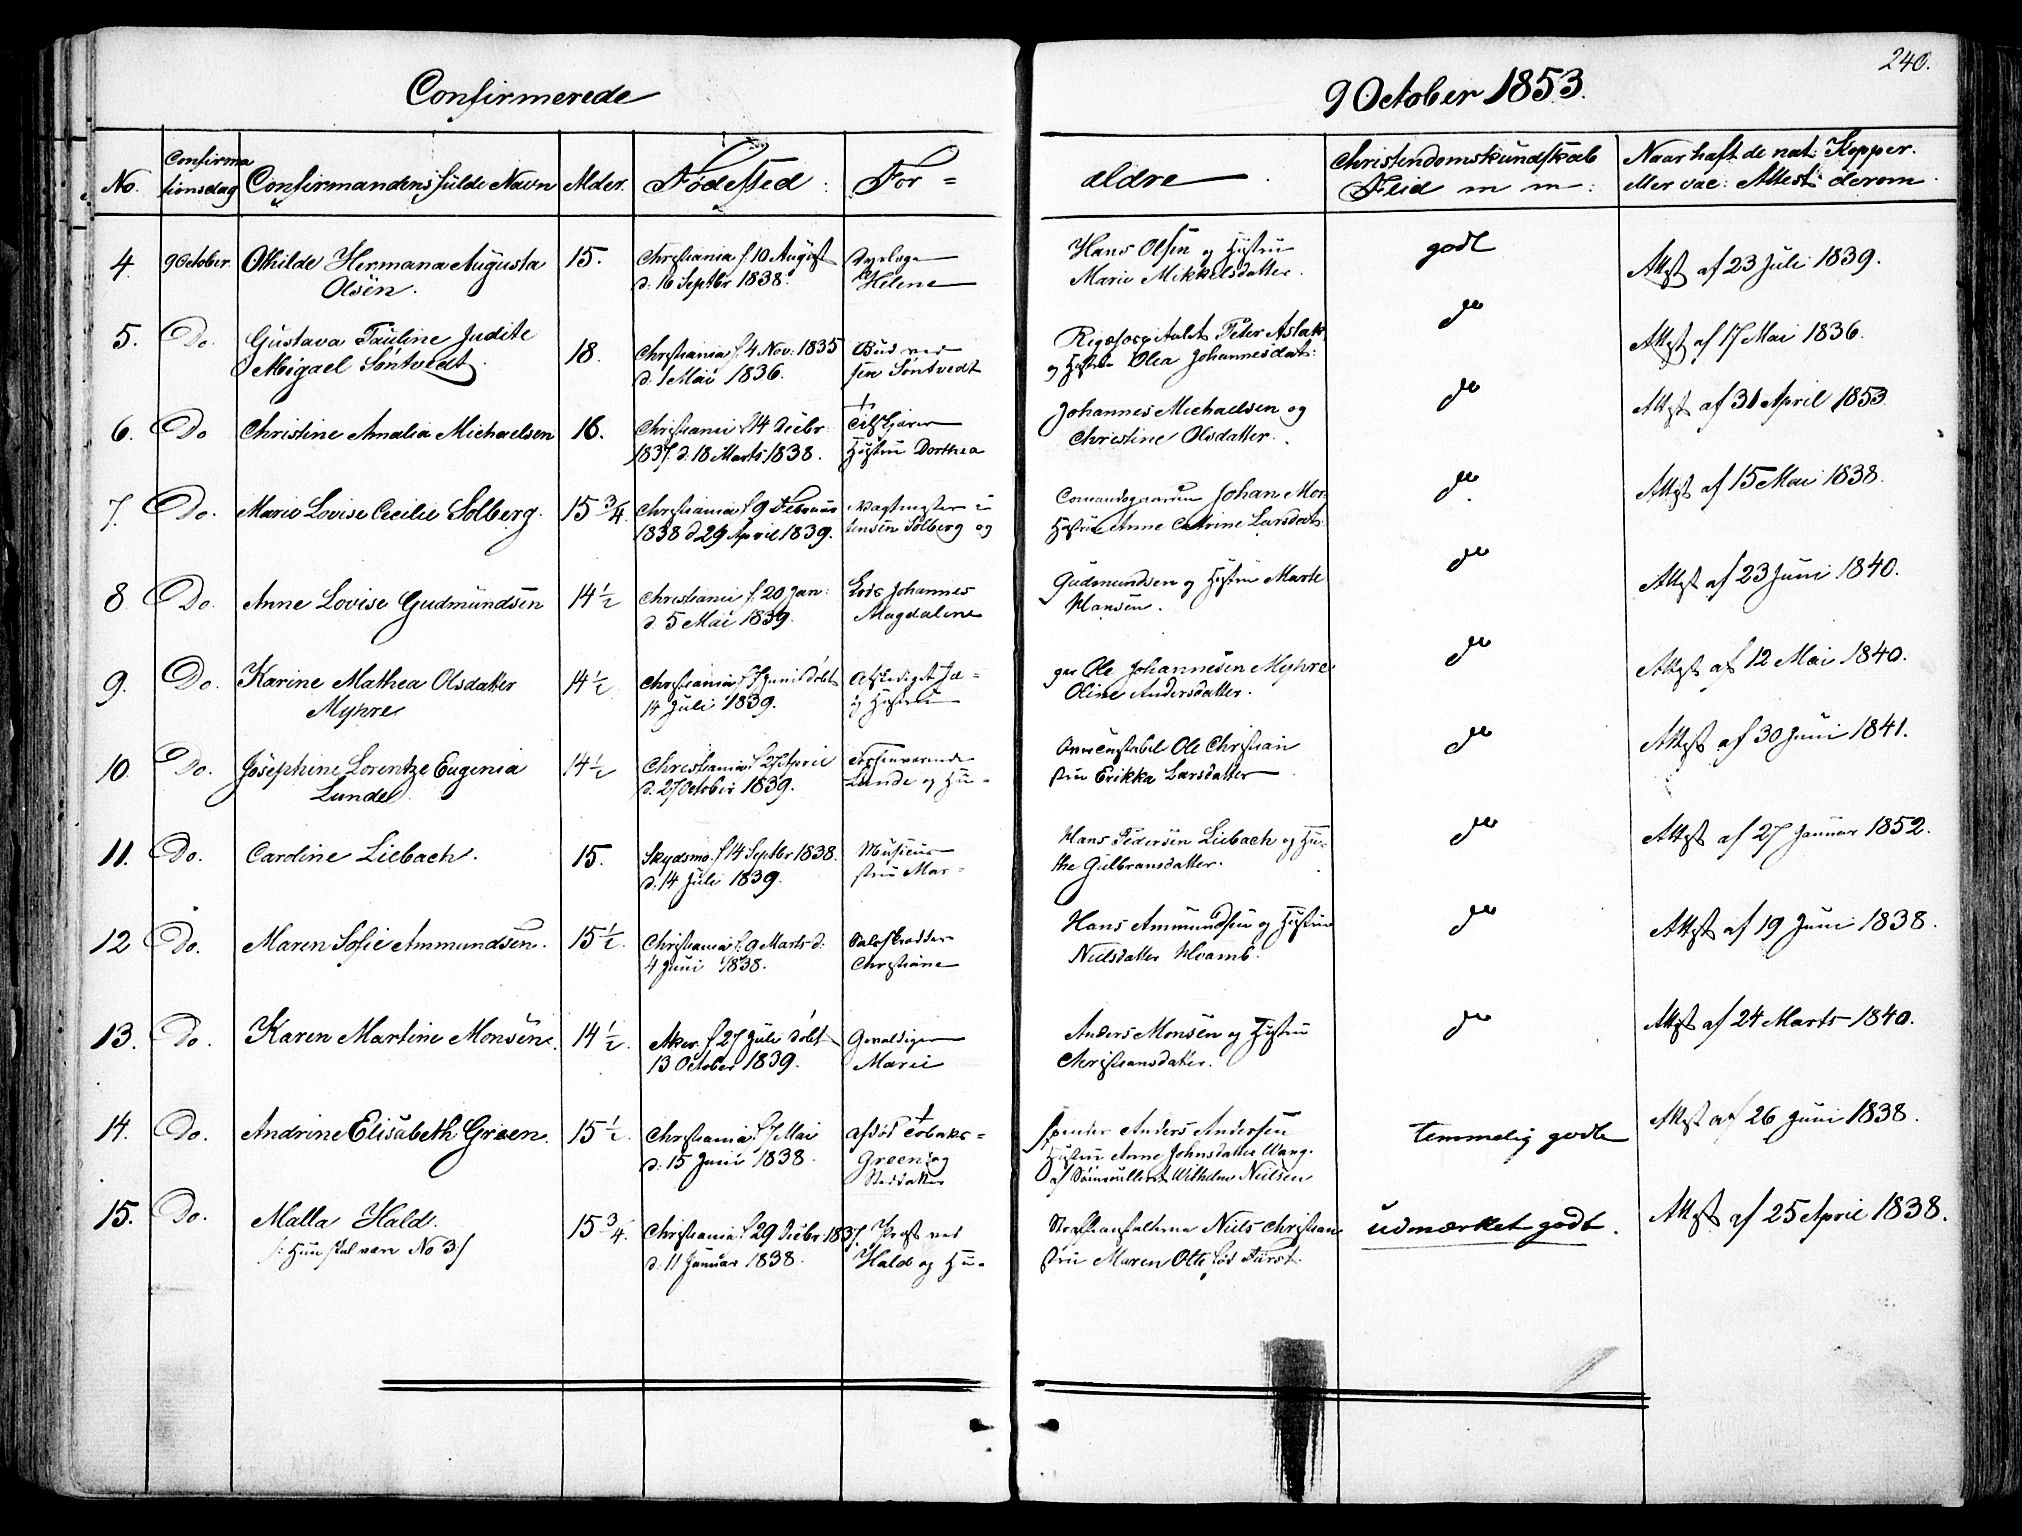 240.
Confirmerede
9 October 1853.
No.
Confirma
tionsdag
Confirmandens fulde Navn
Alder.
Fødested.
For =
ældre
Christendomskundskab
Flid m m:
Naar haft de nat: Kopper.
eller vac: Attest derom.
4 9 October. Othilde Hermana Augusta 15. Christiania f. 10 August Dyrlæge Hans Olsen og Hustru godt Attest af 23 Juli 1839.
Olsen. d: 16 Septbr 1838. Helene Marie Mikkelsdatter.
5. Do. Gustava Pauline Judite 18. Christiania f. 4 Nov: 1835 Bud ved Rigshospitalet Peter Aslak do Attest af 17 Mai 1836.
Migael Søntvedt. d. 1 Mai 1836. sen Søntvedt og Hustru Olea Johannesdat:
6. Do Christine Amalia Michaelsen 16. Christiania 14 Decbr Johannes Michaelsen og do Attest af 31 April 1853.
1837. d: 18 Marts 1838. Hustru Dorthea Christine Olsdatter.
7. Do. Marie Lovise Cecilie Solberg. 15 3/4. Christiania f. 9 Februar Vagtmester i Johan Mor= do. Attest af 15 Mai 1838.
1838 d 29 April 1839. tensen Solberg og Hustru Anne Catrine Larsdat:
8. Do. Anne Lovise Gudmundsen 14 1/2 Christiania f. 20 Jan: Lods Johannes Gudmundsen og Hustru Marte do Attest af 23 Juni 1840.
d. 5 Mai 1839. Magdalene Hansen.
9. Do. Karine Mathea Olsdatter 14 1/2 Christiania f 7 Juni døbt Afskediget Jæ = ger Ole Johannesen Myhre do Attest af 12 Mai 1840.
Myhre 14 Juli 1839. og Hustru Oline Andersdatter.
10. Do. Josephine Lorentze Eugenia 14 1/2 Christiania f. 27 April Forhenværende Ole Christian do Attest af 30 Juni 1841.
Lunde. d. 27 October 1839. Lunde og Hu = stru Erikka Larsdatter
11. Do. Caroline Liebach. 15. Skydsmo. f 14 Septbr 1838. Musicus Hans Pedersen Liebach og Hu= do Attest af 27 Januar 1852.
d. 14 Juli 1839. stru Mar = the Gulbransdatter.
12 Do. Maren Sofie Ammundsen. 15 1/2. Christiania f. 9 Marts d: Hans Ammundsen og Hustru do Attest af 19 Juni 1838.
4 Juni 1838. Christiane Nielsdatter Hvamb.
13. Do. Karen Martine Monsen. 14 1/2. Aker. f 27 Juli døbt Gevaldiger Anders Monsen og Hustru do Attest af 24 Marts 1840.
13 October 1839. Marie Christiansdatter.
14. Do. Andrine Elisabeth Green. 15 1/2. Christiania f. 7 Mai afdød Tobaks = spinder Anders Andersen temmelig godt Attest af 26 Juni 1838.
d. 15 Juni 1838. Green og Hustru Anne Johnsdatter Wang.
Steddatter af Wilhelm Nielsen
15. Do. Malla Hald. 15 3/4. Christiania f 29 Decbr. 1837. Præst ved Strafanstalterne Niels Christian udmærket godt. Attest af 25 April 1838.
/: Hun skal være No 3 :/ d. 11 Januar 1838. Hald og Hu = stru Maren Otte fød Fürst.